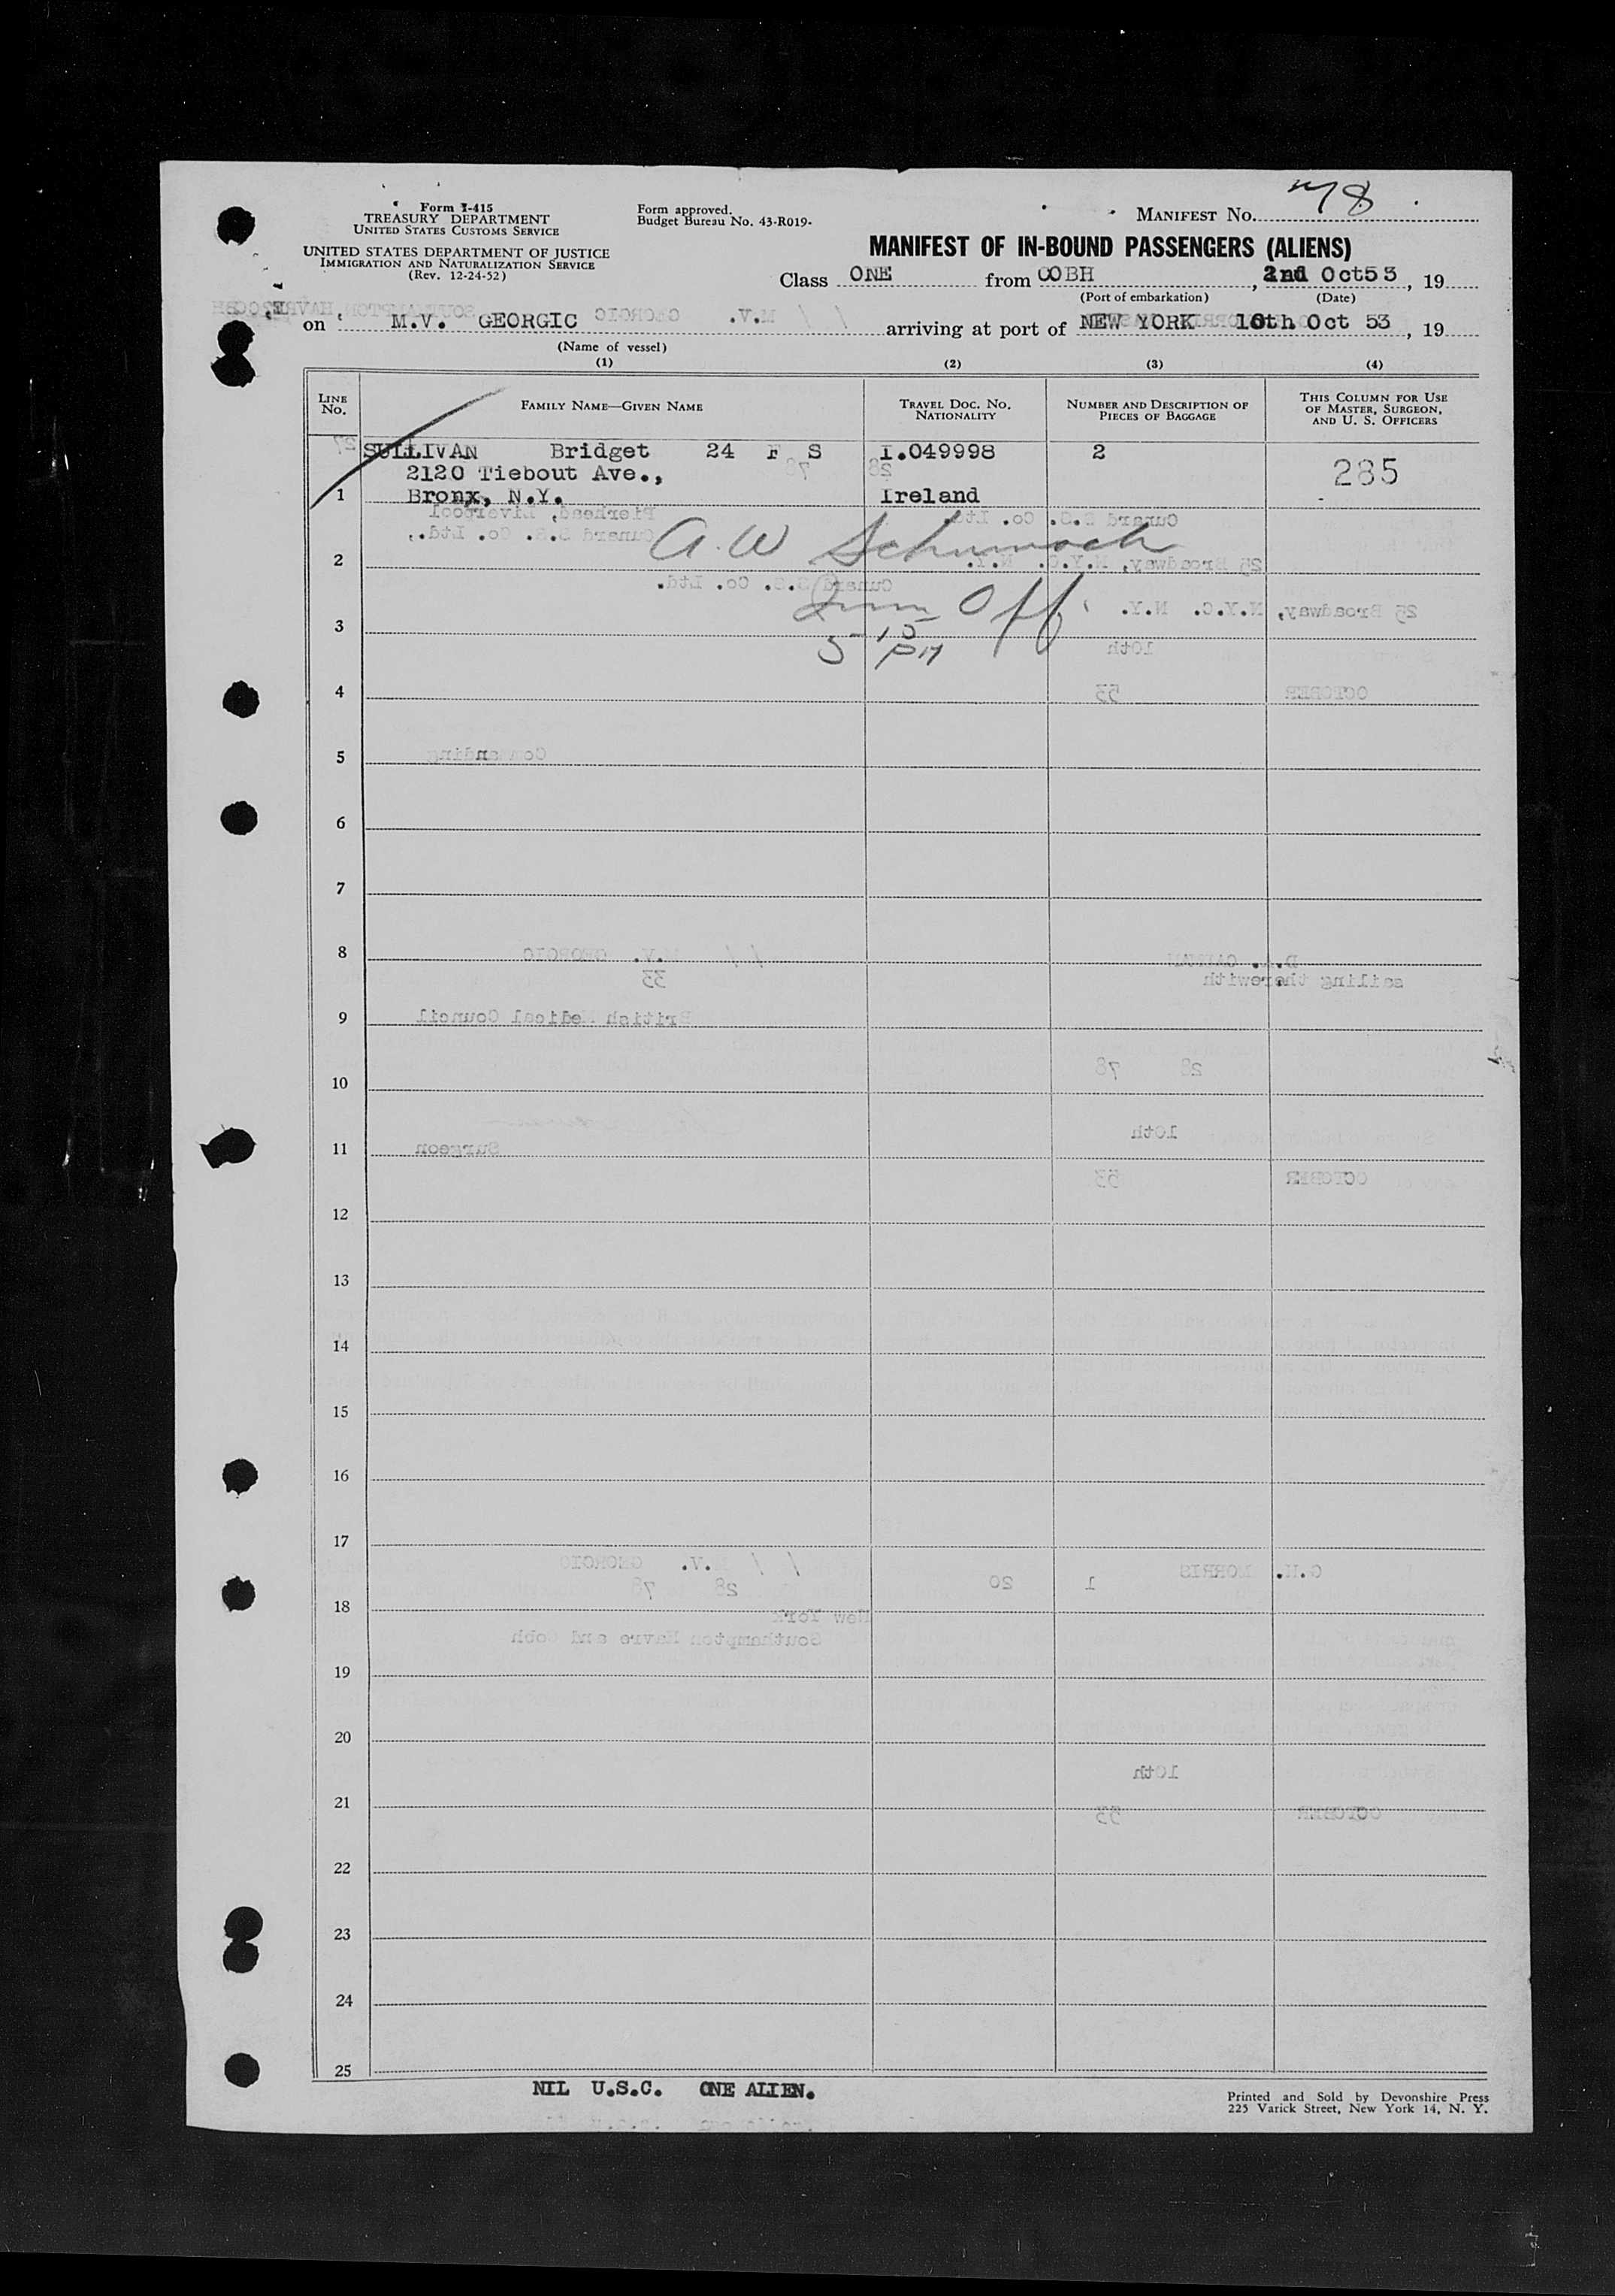 Form I-415
TREASURY DEPARTMENT
UNITED STATES CUSTOMS SERVICE
UNITED STATES DEPARTMENT OF JUSTICE
IMMIGRATION AND NATURALIZATION SERVICE
(Rev. 12-24-52)
Form approved.
Budget Bureau No. 43-R019-
MANIFEST No. 78
MANIFEST OF IN-BOUND PASSENGERS (ALIENS)
Class ONE from COBH, 2nd Oct 53, 19
(Port of embarkation) (Date)
on M.V. GEORGIC arriving at port of NEW YORK 10th Oct 53, 19
(Name of vessel)
(1) (2) (3) (4)
LINE No. FAMILY NAME—GIVEN NAME TRAVEL DOC. No. NATIONALITY NUMBER AND DESCRIPTION OF PIECES OF BAGGAGE THIS COLUMN FOR USE OF MASTER, SURGEON, AND U. S. OFFICERS
SULLIVAN Bridget 24 F S I.049998 2
2120 Tiebout Ave., 285
1 Bronx, N.Y. Ireland
A. W Schumach
2
Imm Off
3
5 15 PM
4
5
6
7
8
9
10
11
12
13
14
15
16
17
18
19
20
21
22
23
24
25
NIL U.S.C. ONE ALIEN.
Printed and Sold by Devonshire Press
225 Varick Street, New York 14, N. Y.